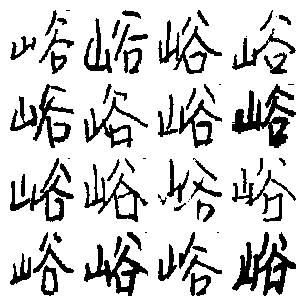 峪峪峪峪
峪峪峪峪
峪峪峪峪
峪峪峪峪